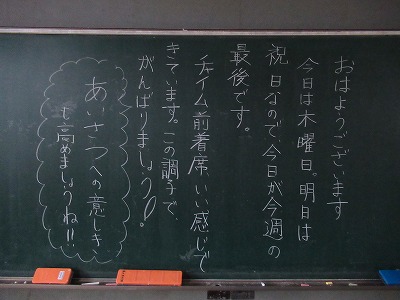 おはようございます
今日は木曜日。明日は
祝日なので、今日が今週の
最後です。
チャイム前着席いい感じで
きています。この調子で、
がんばりましょう。
あいさつへの意しき
も高めましょうね!!